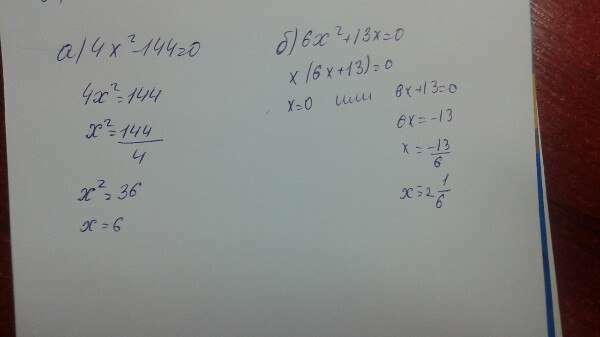 а) 4x²-144=0
4x²=144
x²=144/4
x²=36
x=6
б) 6x²+13x=0
x(6x+13)=0
x=0 или 6x+13=0
6x=-13
x=-13/6
x=2 1/6